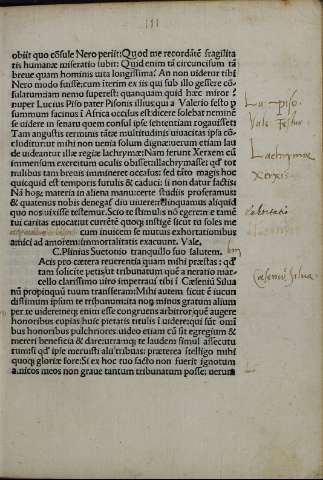 III
obiit quo cõsule Nero periit: Quod me recordãtẽ fragilita
tis humanæ miseratio subit: Quid enim tã circuncisum tã
breue quam hominis uita longissima? An non uidetur tibi
Nero modo fuisse: cum iterim ex iis qui sub illo gessere cõ
sulatum iam nemo superest: quanquam quid hæc miror?
nuper Lucius Piso pater Pisonis illius: qui a Valerio festo p
summum facinus ĩ Africa occisus est: dicere solebat neminẽ
se uidere in senatu quem consul ipse sententiam rogauisset:
Tam angustis terminis tãtæ multitudinis uiuacitas ipsa cõ
cluditur: ut mihi non uenia solum dignæ: uerum etiam lau
de uideantur illæ regiæ lachrymæ: Nam ferunt Xerxem cũ
immensum exercitum oculis obisset: illachrymasse: ꝙ tot
milibus tam breuis immineret occasus: sed tãto magis hoc
quicquid est temporis futulis & caduci: si non datur factis:
Nã hoꝝ materia in aliena manu: certe studiis proferamus:
& quatenus nobis denegat᷑ diu uiuere: relinquamus aliquid
quo nos uixisse testemur. Scio te stimulis nõ egere: me tamẽ
tui caritas euocat: ut currẽtẽ quoqȝ instigẽ sicut tu soles me
cum inuicem se mutuis exhortationibus
amici ad amorem immortalitatis exacuunt. Vale.
C. Plinius Suetonio tranquillo suo salutem.
Acis pro cætera reuerentia quam mihi præstas: ꝙ
tam solicite petis: ut tribunatum quẽ a neratio mar
cello clarissimo uiro impetraui tibi ĩ Cæsenũ Siluã
propinquũ tuum transferam: Mihi autem sicut ẽ iucun
dissimum ipsum te tribunum: ita nõ minus gratum alium
per te uidere: neqȝ enim esse congruens arbitror: quẽ augere
honoribus cupias huic pietatis titulis ĩuidere: qui sũt omĩ
bus honoribus pulchriores: uideo etiam cũ sit egregium &
mereri beneficia & dare: utranqȝ te laudem simul assecutu
rum: si ꝙ ipse meruisti alii tribuas: præterea ĩtelligo mihi
quoqȝ gloriæ fore: si ex hoc tuo facto non fuerit ignotum
amicos meos non grauæ tantum tribunatum posse: uerum
Lu. Piso.
Vale. Festus
Lachrymæ
Xerxis.
Cæsenius Silua.